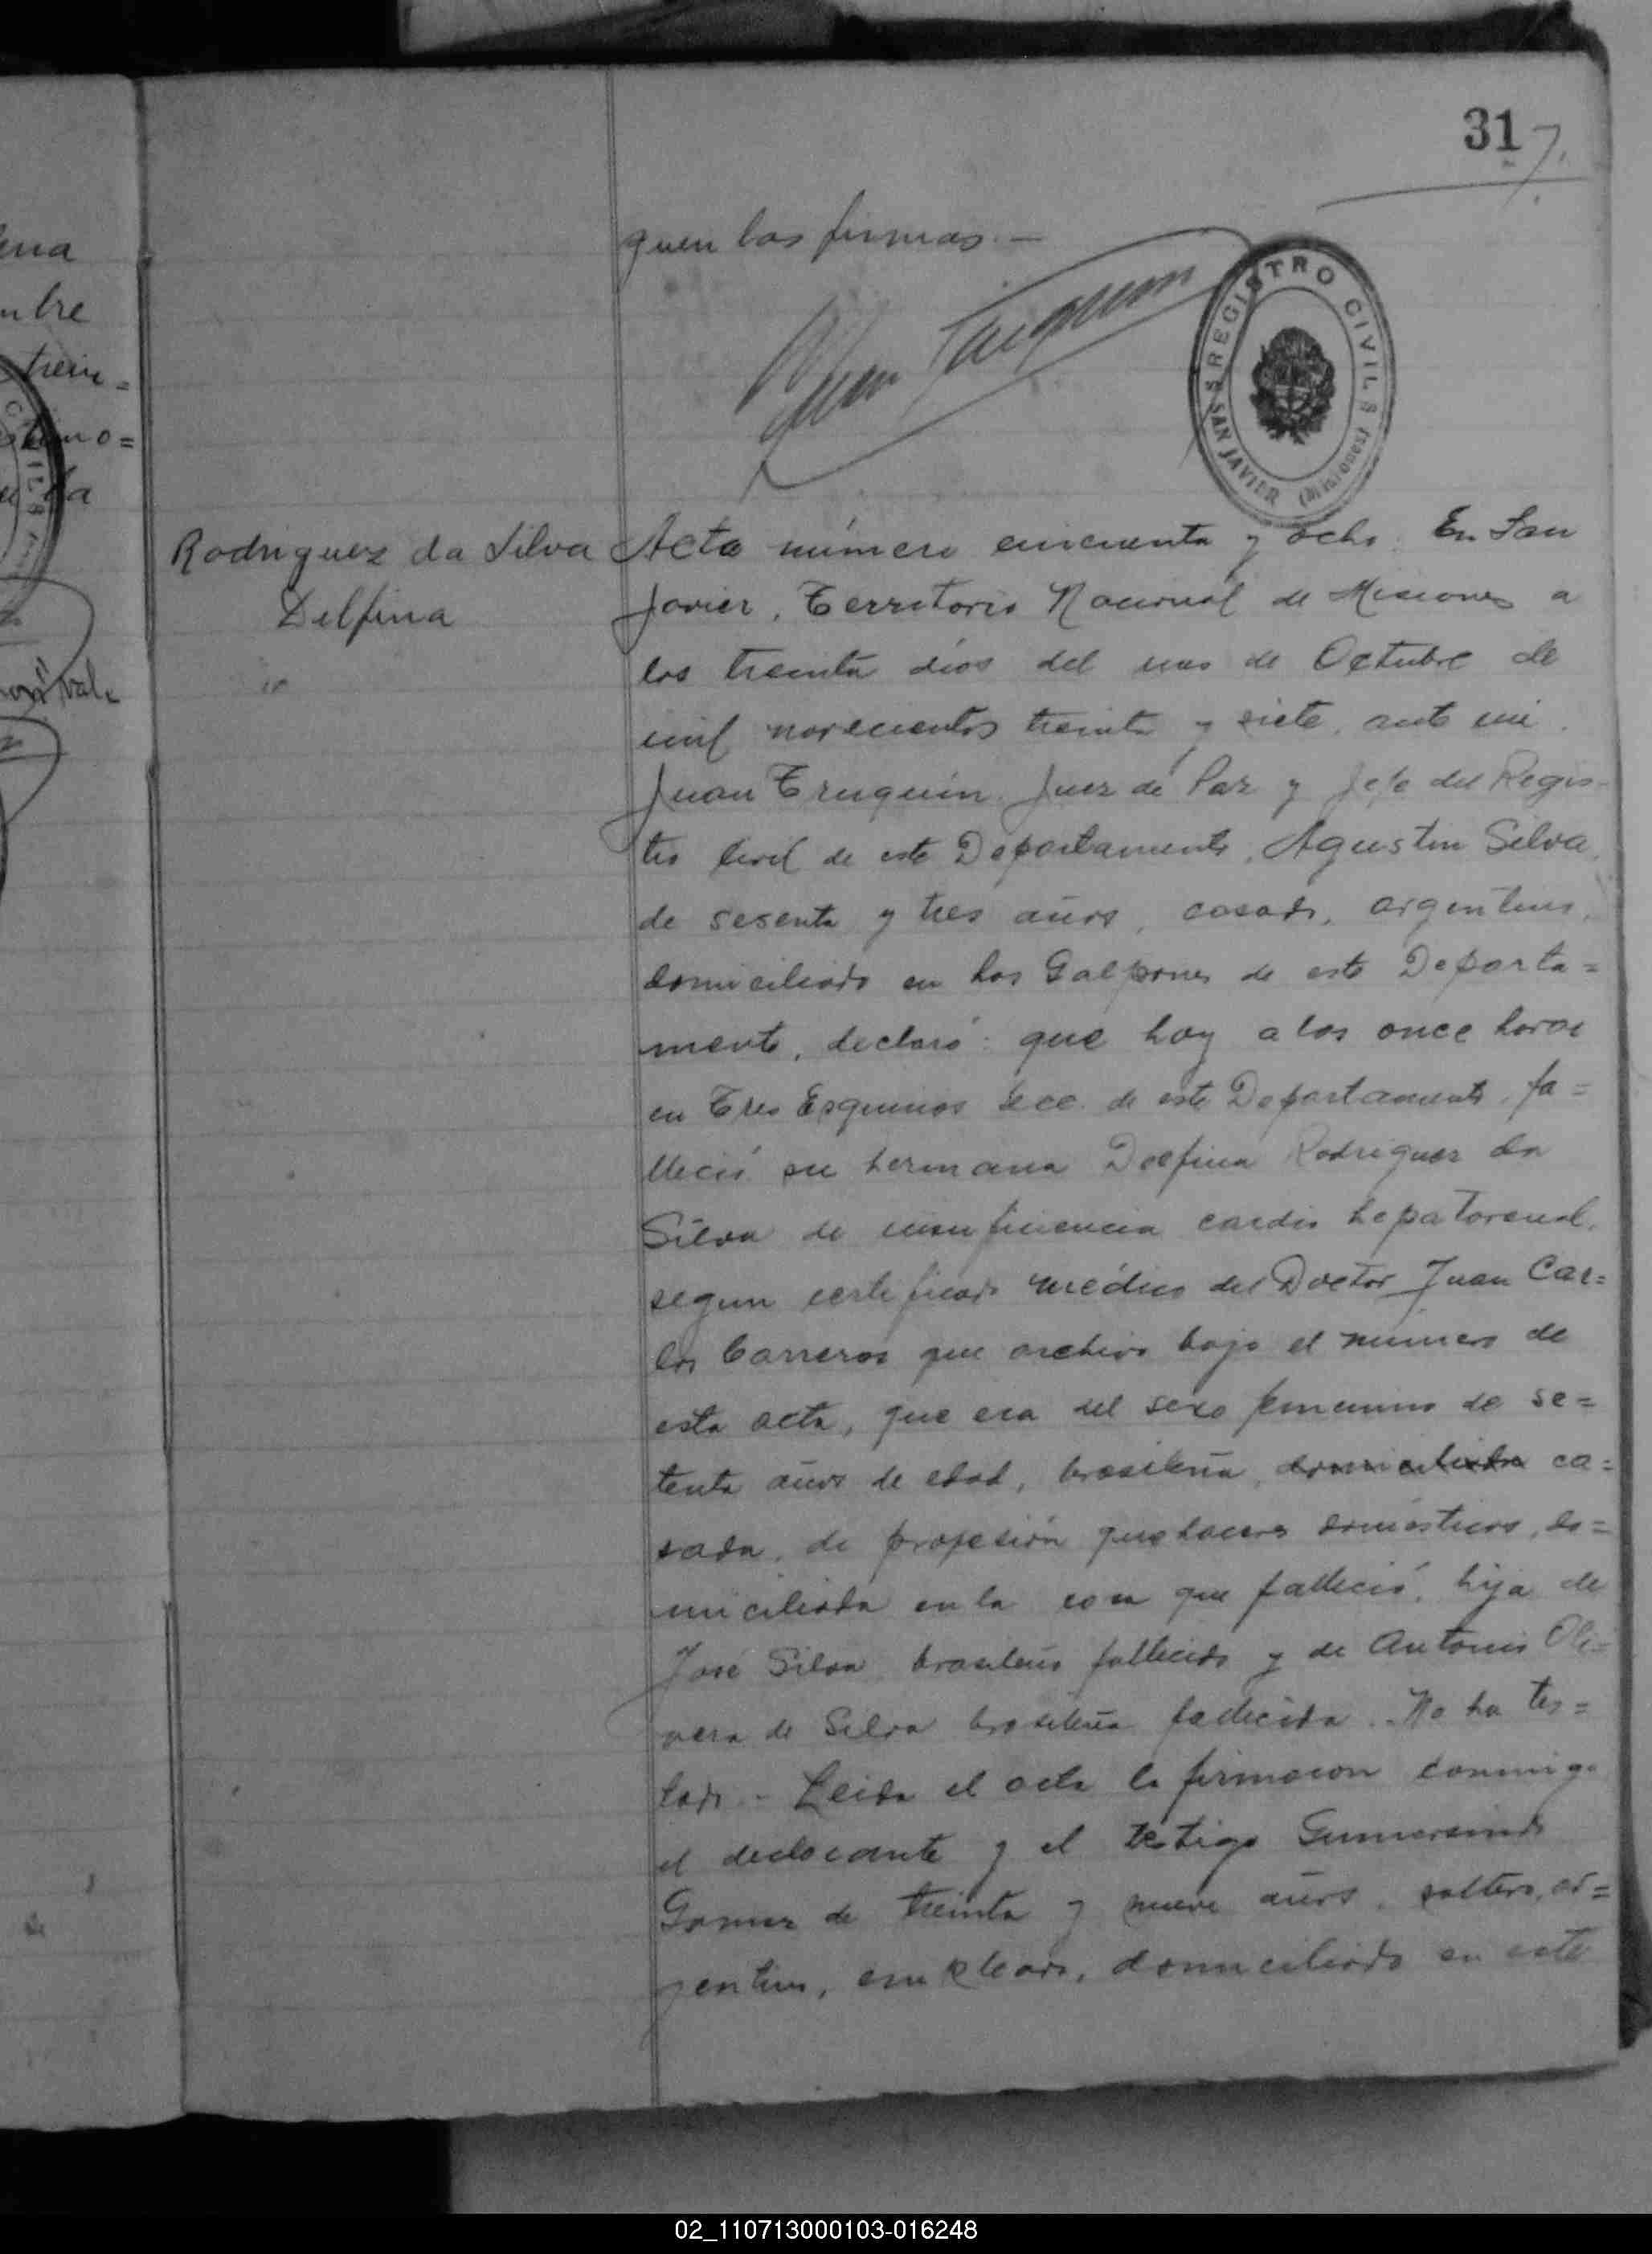 31
7.
guen las firmas. —
REGISTRO CIVIL
SAN JAVIER (Misiones)
Rodriguez da Silva
Delfina
Acta número cincuenta y ocho. En San
Javier, Territorio Nacional de Misiones a
los treinta dias del mes de Octubre de
mil novecientos treinta y siete, ante mi
Juan Truquin Juez de Paz y Jefe del Regis-
tro Civil de este Departamento, Agustin Silva,
de sesenta y tres años, casado, argentino,
domiciliado en Los Galpones de este Departa=
mento, declaró: que hoy a las once horas
en Tres Esquinas Secc. de este Departamento, fa=
lleció su hermana Delfina Rodriguez da
Silva de insuficiencia cardio hepatorenal,
segun certificado médico del Doctor Juan Car=
los Carreras que archivo bajo el número de
esta acta, que era del sexo femenino de se=
tenta años de edad, brasileña, domiciliada ca=
sada, de profesión quehaceres domésticos, do=
miciliada en la casa que falleció, hija de
José Silva brasileño fallecido y de Antonia Oli=
vera de Silva brasileña fallecida. No ha tes=
tado. - Leida el acta la firmaron conmigo
el declarante y el testigo Gumersindo
Gomez de treinta y nueve años, soltero, ar=
gentino, empleado, domiciliado en este
ena
mbre
trein=
timo=
la
vale
02_110713000103-016248